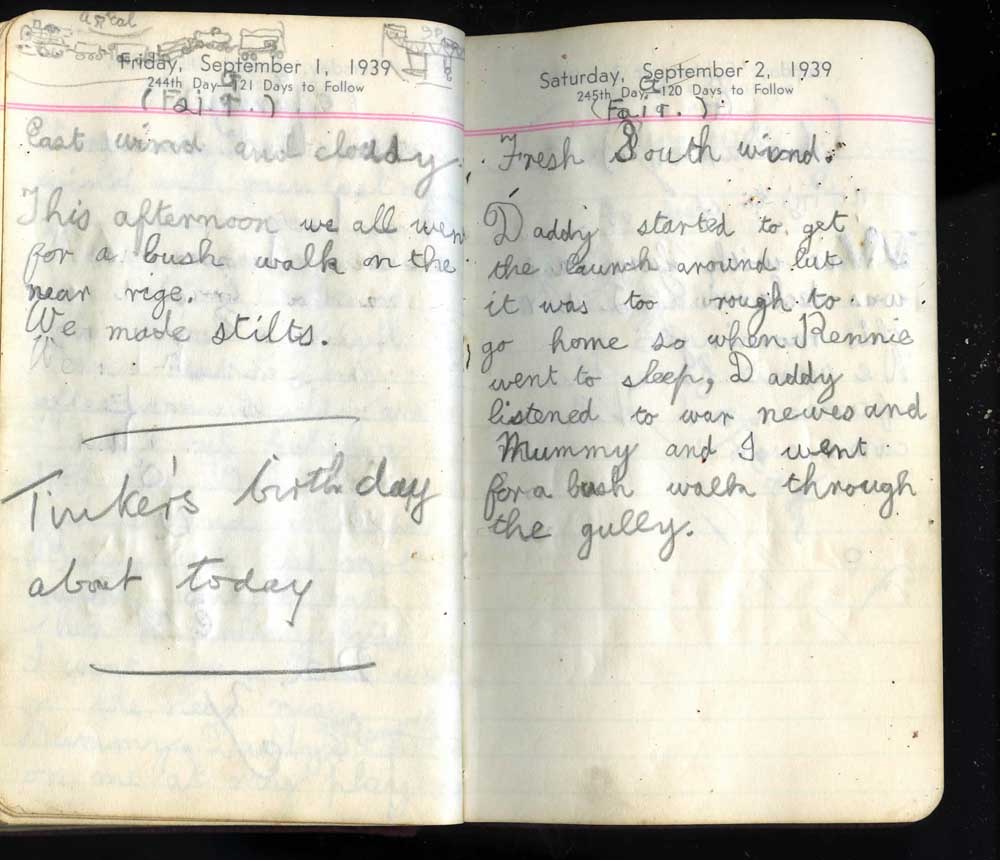 Friday, September 1, 1939
244th Day 121 Days to Follow
East wind and cloudy.
This afternoon we all wen
for a bush walk on the
near rige.
We made stilts.
Tinker's birthday
about today
Saturday, September 2, 1939
245th Day 120 Days to Follow
(Fair.)
Fresh South wind.
Daddy started to get
the launch around but
it was too rough to
go home so when Rennie
went to sleep, Daddy
listened to war newes and
Mummy and I went
for a bush walk through
the gully.